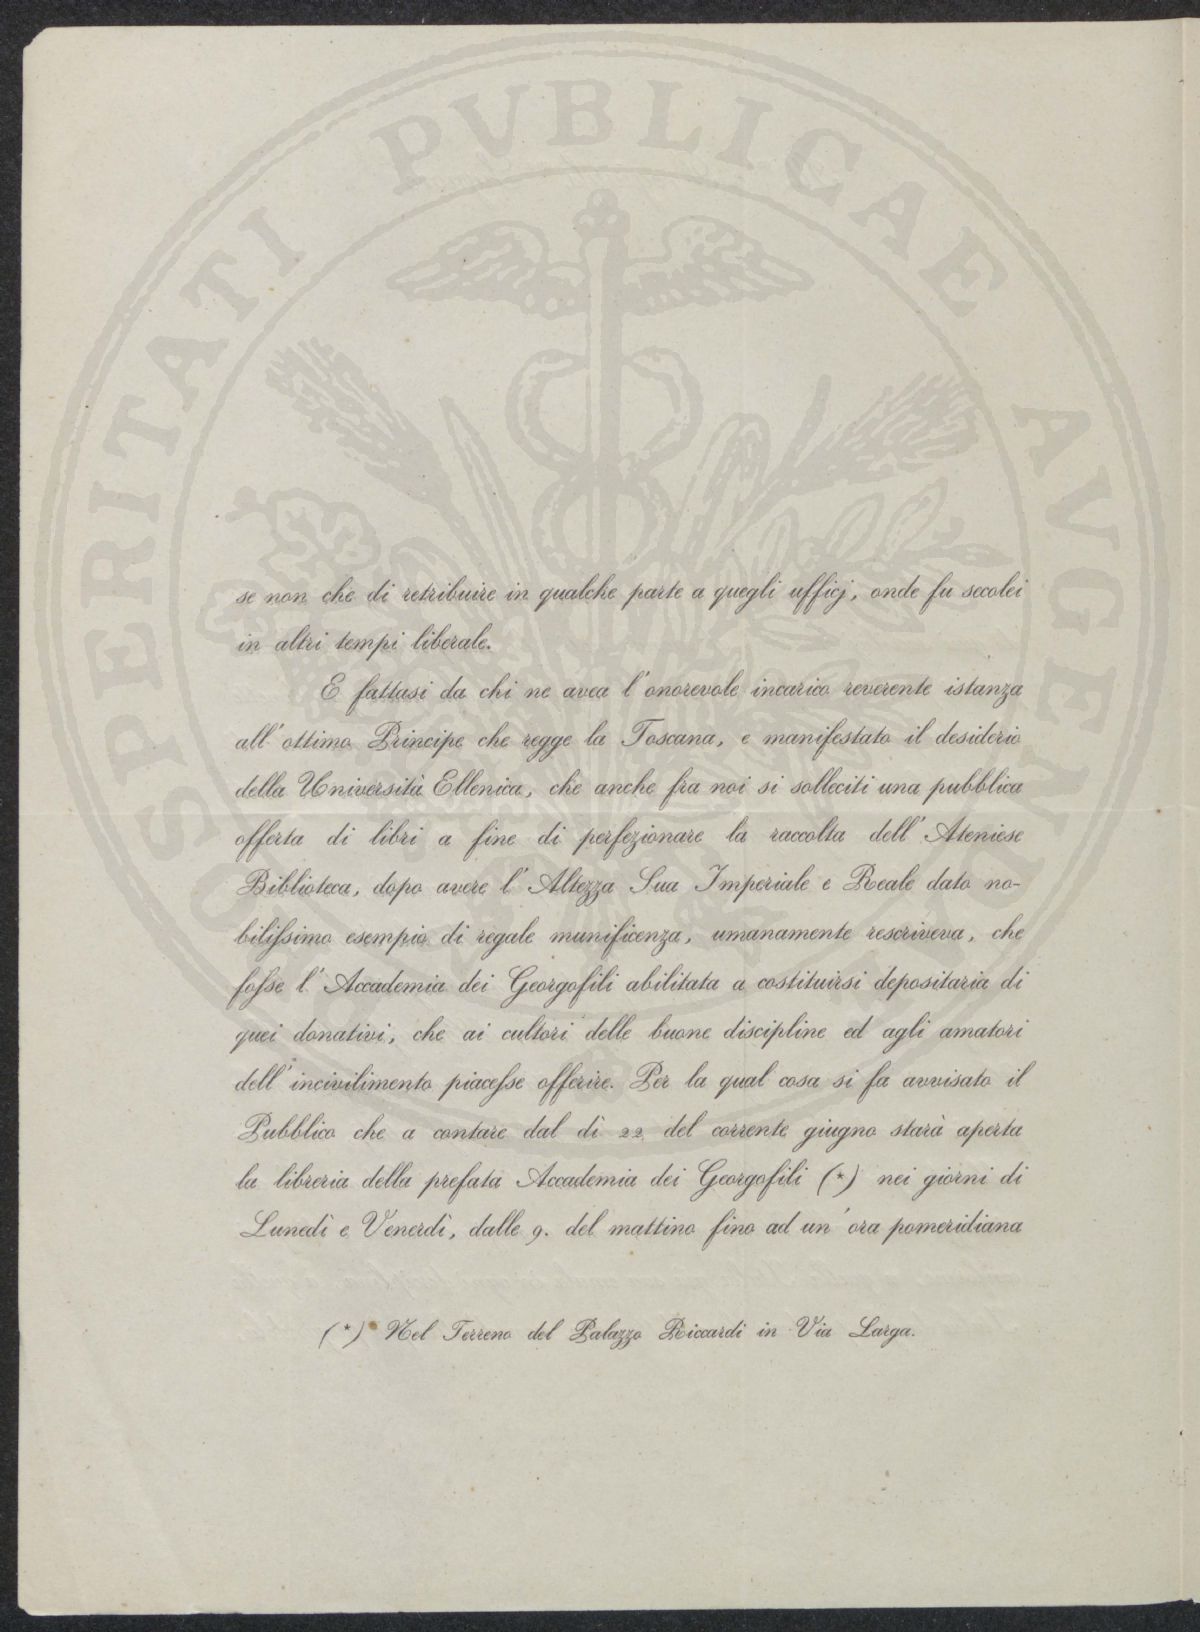 PROSPERITATI PUBLICAE AVGENDAE
se non che di retribuire in qualche parte a quegli ufficj, onde fu secolei
in altri tempi liberale.
E fattasi da chi ne avea l'onorevole incarico reverente istanza
all'ottimo Principe che regge la Toscana, e manifestato il desiderio
della Università Ellenica, che anche fra noi si solleciti una pubblica
offerta di libri a fine di perfezionare la raccolta dell'Ateniese
Biblioteca, dopo avere l'Altezza Sua Imperiale e Reale dato no-
bilissimo esempio di regale munificenza, umanamente rescriveva, che
fosse l'Accademia dei Georgofili abilitata a costituirsi depositaria di
quei donativi, che ai cultori delle buone discipline ed agli amatori
dell'incivilimento piacesse offerire. Per la qual cosa si fa avvisato il
Pubblico che a contare dal dì 22 del corrente giugno starà aperta
la libreria della prefata Accademia dei Georgofili (*) nei giorni di
Lunedì e Venerdì, dalle 9. del mattino fino ad un'ora pomeridiana
(*) Nel Terreno del Palazzo Riccardi in Via Larga.